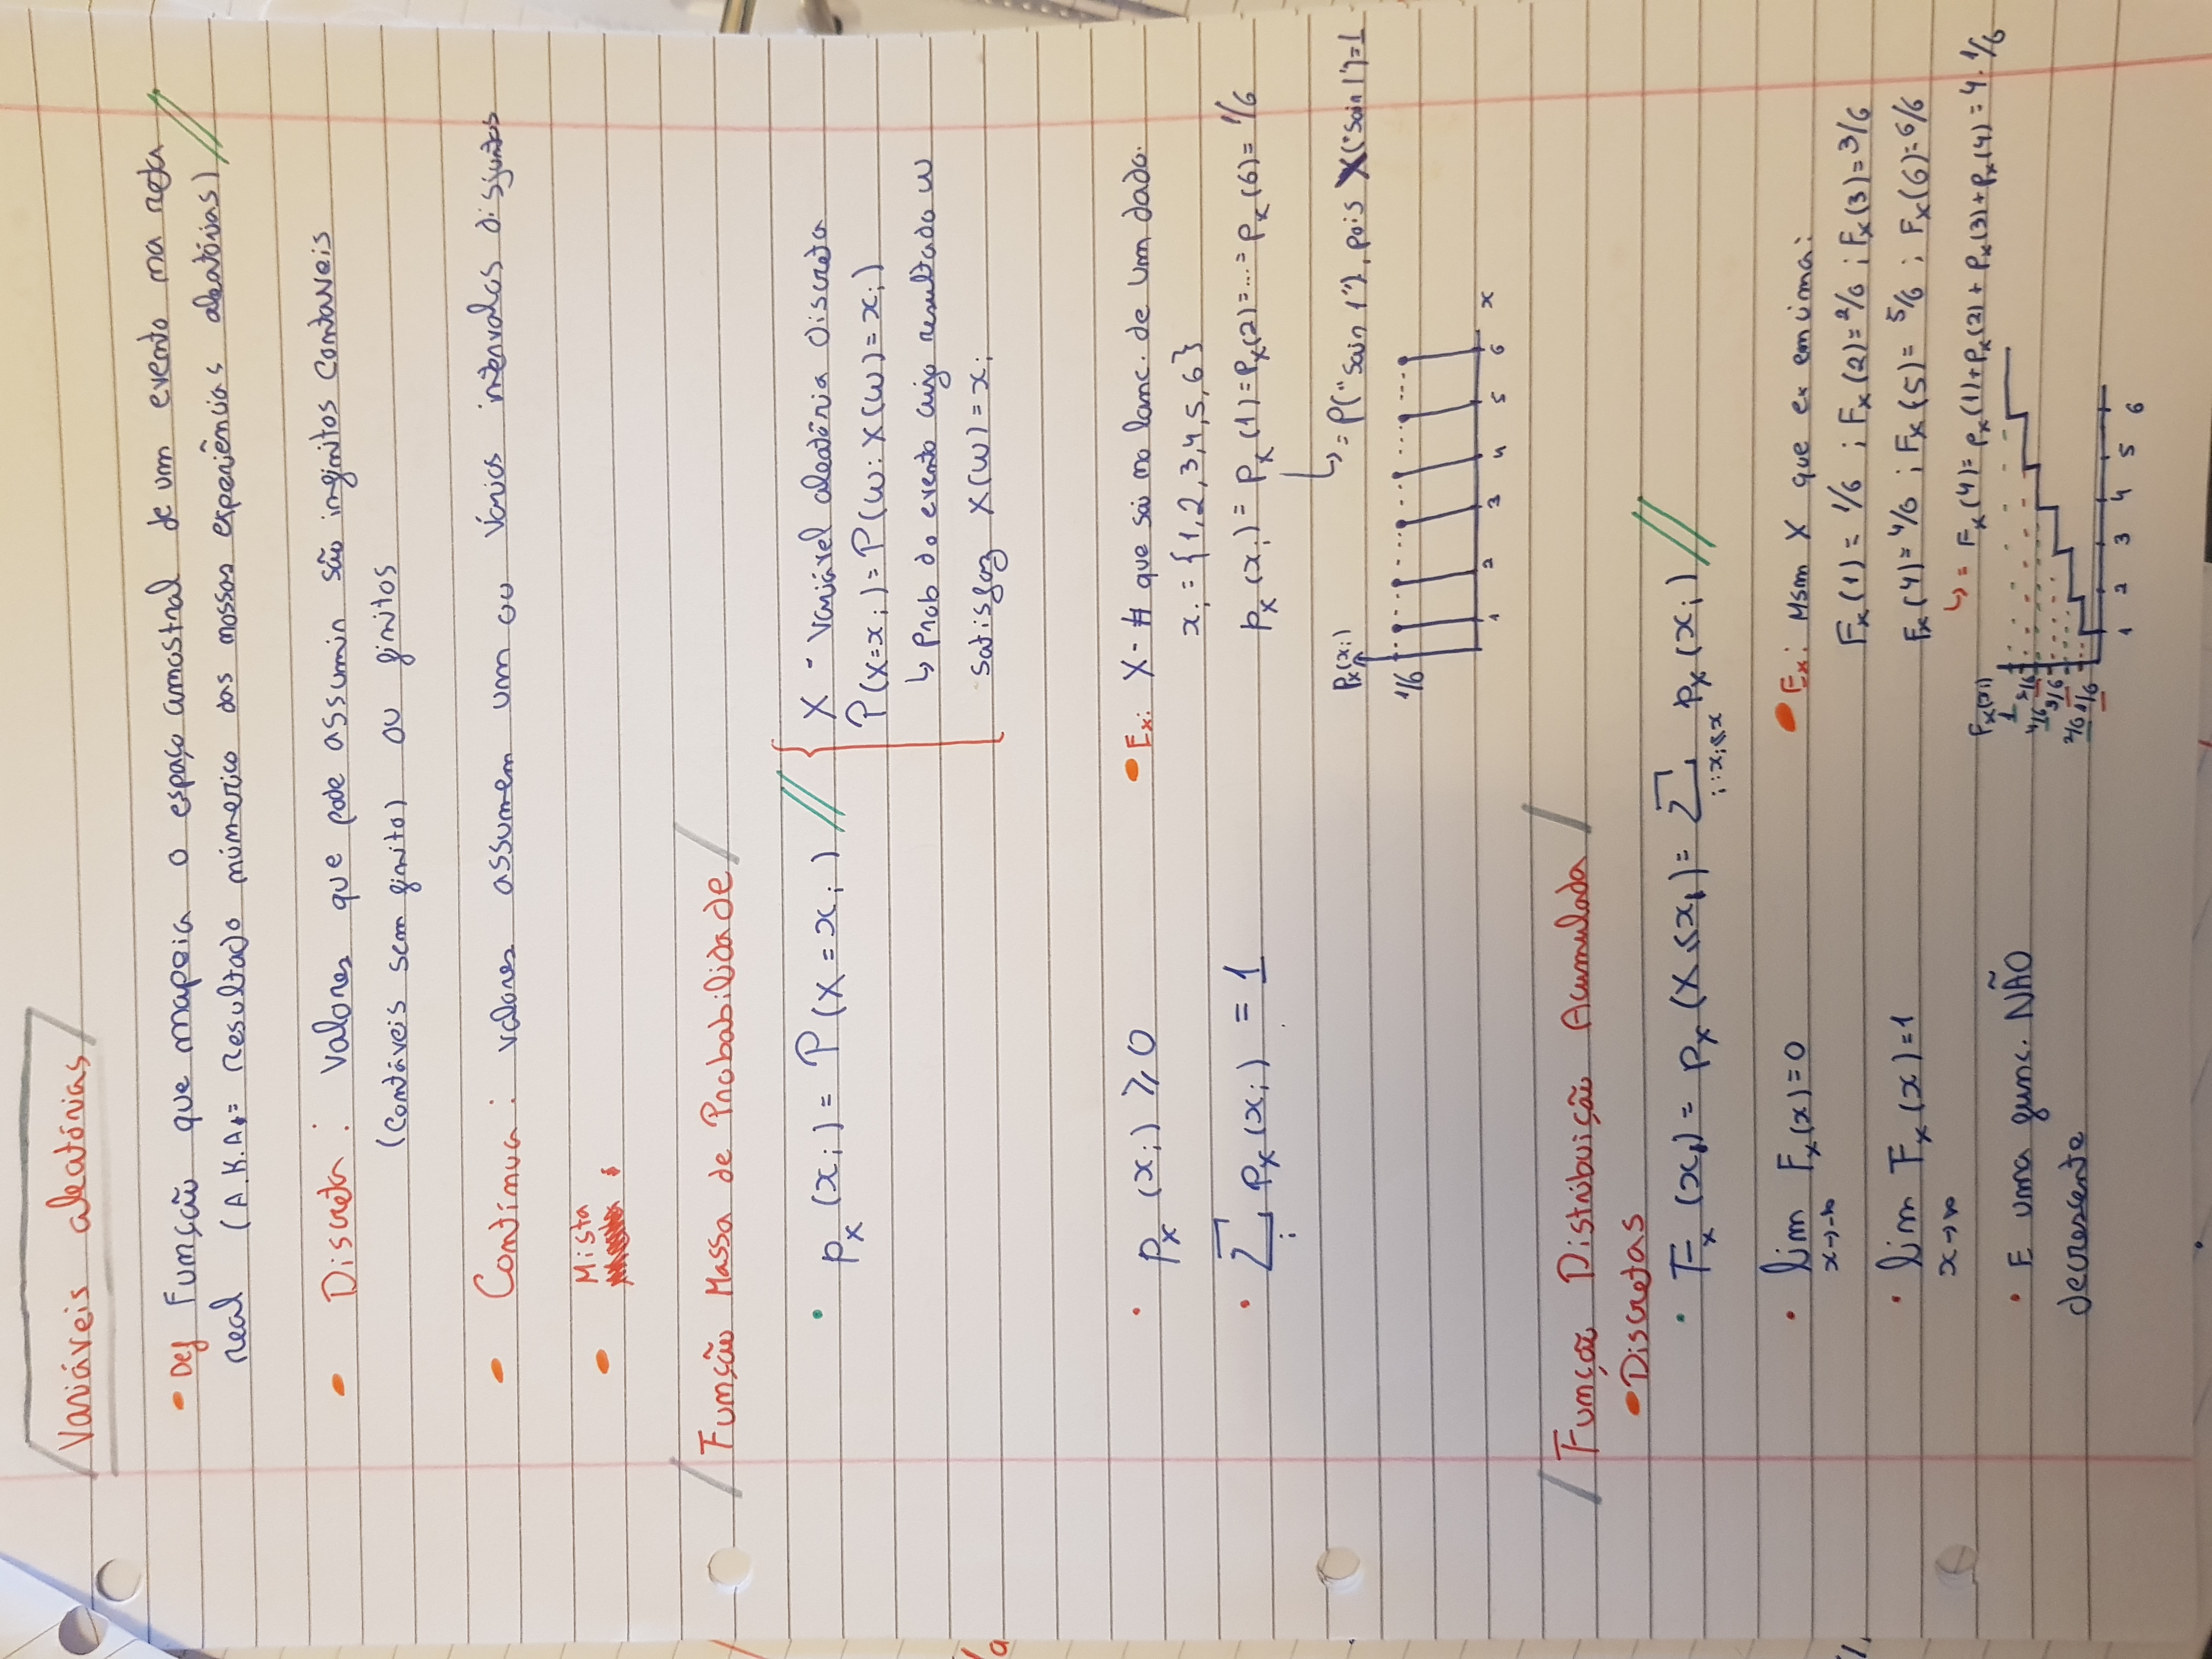 Variáveis aleatórias
• Def Função que mapeia o espaço amostral de um evento na reta
real (A.K.A.= Resultado númerico das nossas experiências aleatórias) //
• Discreta : Valores que pode assumir são infinitos contaveis
(Contáveis sem finito) ou finitos
• Contínua : valores assumem um ou vários intervalos disjuntos
• Mista
Função Massa de Probabilidade
• pₓ(xᵢ) = P(X = xᵢ) //
X - variável aleatória discreta
P(X=xᵢ) = P(w: X(w) = xᵢ)
↳ Prob do evento cujo resultado w
satisfaz X(w) = xᵢ
• pₓ(xᵢ) ≥ 0
• Σᵢ pₓ(xᵢ) = 1
• Ex: X - # que sai no lanc. de um dado.
xᵢ = {1,2,3,4,5,6}
pₓ(xᵢ) = pₓ(1) = pₓ(2) = ... = pₓ(6) = 1/6
↳ = P("Sair 1"), pois X("Sair 1") = 1
Pₓ(xᵢ)
1/6
1 2 3 4 5 6 x
Função Distribuição Acumulada
• Discretas
• Fₓ(x) = pₓ(X ≤ x) = Σ pₓ(xᵢ) //
i:xᵢ≤x
• lim Fₓ(x) = 0
x→-∞
• lim Fₓ(x) = 1
x→∞
• E uma func. NÃO
decrescente
• Ex: Msm X que ex em cima:
Fₓ(1) = 1/6 ; Fₓ(2) = 2/6 ; Fₓ(3) = 3/6
Fₓ(4) = 4/6 ; Fₓ(5) = 5/6 ; Fₓ(6) = 6/6
↳ = Fₓ(4) = pₓ(1) + pₓ(2) + pₓ(3) + pₓ(4) = 4 . 1/6
Fₓ(xᵢ)
1
5/6
4/6
3/6
2/6 1/6
1 2 3 4 5 6